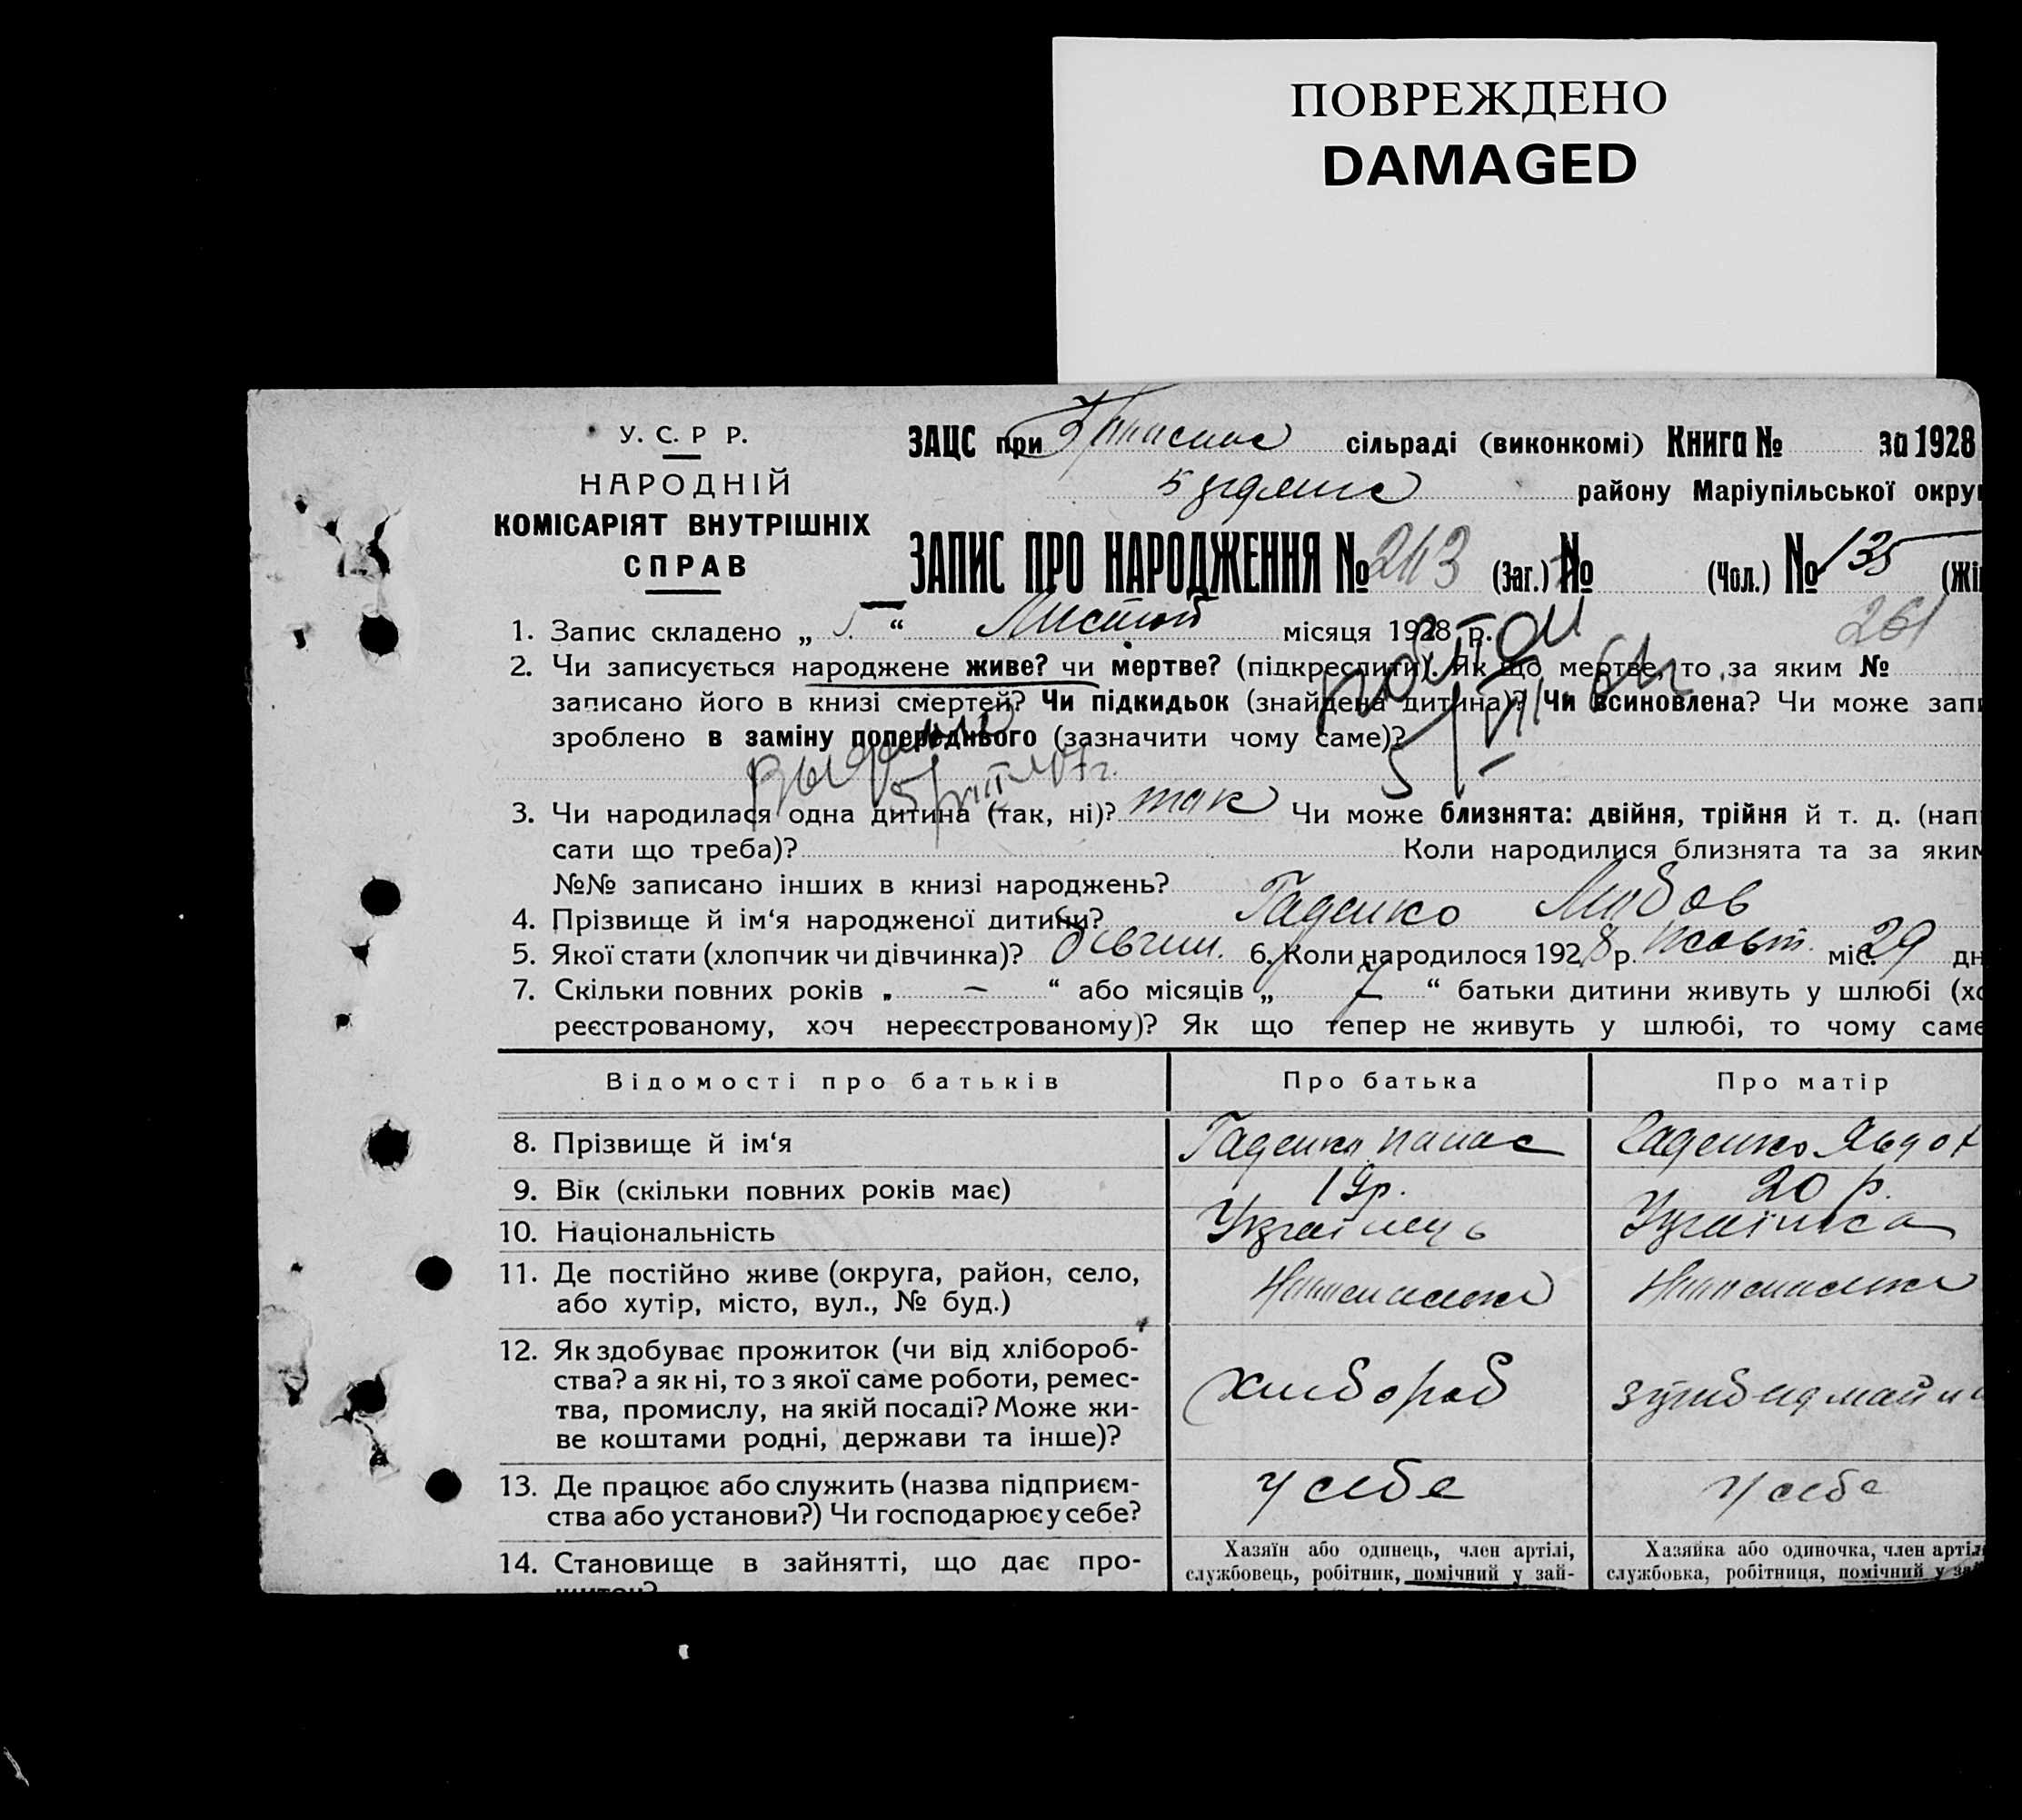 ПОВРЕЖДЕНО
DAMAGED
У. С. Р Р.
НАРОДНІЙ
КОМІСАРІЯТ ВНУТРІШНІХ
СПРАВ
ЗАЦС при сільраді (виконкомі) Книга № за 1928
району Маріупільської окру
ЗАПИС ПРО НАРОДЖЕННЯ № 243 (Заг.) № (Чол.) № 135 (Жі
261
1. Запис складено „ “ Листоп місяця 1928 р.
2. Чи записується народжене живе? чи мертве? (підкреслити). Як що мертве, то за яким №
записано його в книзі смертей? Чи підкидьок (знайдена дитина)? Чи всиновлена? Чи може зап
зроблено в заміну попереднього (зазначити чому саме)?
3. Чи народилася одна дитина (так, ні)? так Чи може близнята: двійня, трійня й т. д. (нап
сати що треба)? Коли народилися близнята та за яким
№№ записано інших в книзі народжень?
4. Прізвище й ім‘я народженої дитини? Гаденко Любов
5. Якої стати (хлопчик чи дівчинка)? дівчин. 6. Коли народилося 1928 р. жовт. міс. 29 дн
7. Скільки повних років „ – “ або місяців „ 7 “ батьки дитини живуть у шлюбі (хо
реєстрованому, хоч нереєстрованому)? Як що тепер не живуть у шлюбі, то чому саме
Відомості про батьків Про батька Про матір
8. Прізвище й ім‘я Гаденко Панас Гаденко Явдох
9. Вік (скільки повних років має) 19р. 20 р.
10. Національність Українець Українка
11. Де постійно живе (округа, район, село,
або хутір, місто, вул., № буд.)
12. Як здобуває прожиток (чи від хлібороб-
ства? а як ні, то з якої саме роботи, ремес-
тва, промислу, на якій посаді? Може жи-
ве коштами родні, держави та інше)?
хлібороб
13. Де працює або служить (назва підприєм-
ства або установи?) Чи господарює у себе?
у себе у себе
14. Становище в зайнятті, що дає про-
житок?
Хазяїн або одинець, член артілі,
службовець, робітник, помічний у зай-
Хазяйка або одиночка, член артіл
службовка, робітниця, помічний у за